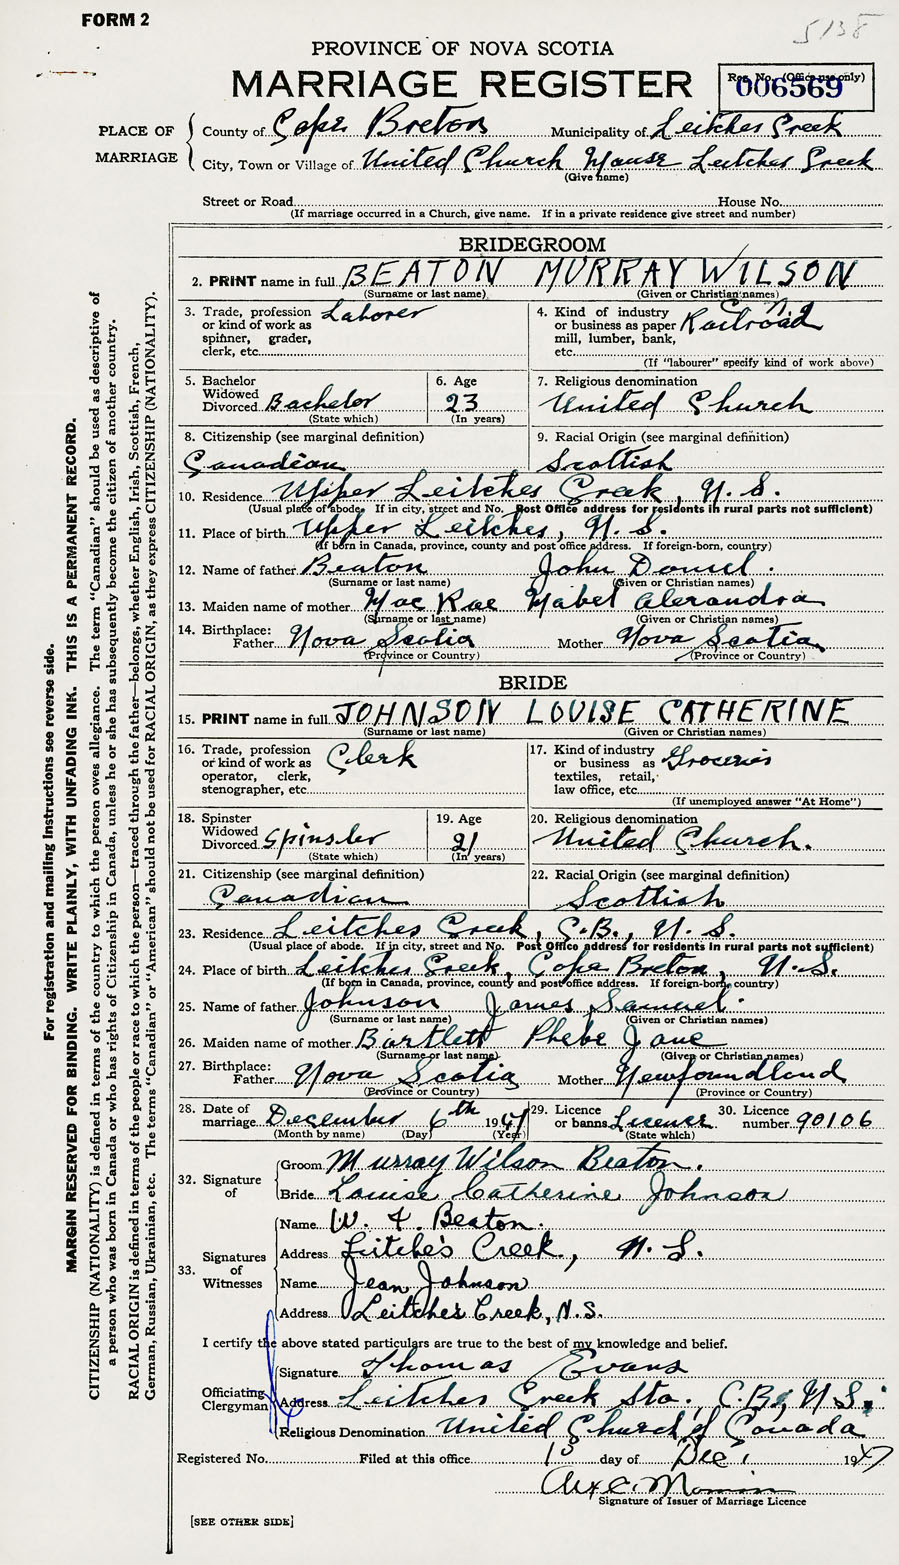 FORM 2
5138
PROVINCE OF NOVA SCOTIA
MARRIAGE REGISTER
Reg. No. (Office use only)
006569
PLACE OF MARRIAGE
County of Cape Breton Municipality of Leitches Creek
City, Town or Village of United Church Manse Leitches Creek
(Give name)
Street or Road House No.
(If marriage occurred in a Church, give name. If in a private residence give street and number)
BRIDEGROOM
2. PRINT name in full BEATON MURRAY WILSON
(Surname or last name) (Given or Christian names)
3. Trade, profession or kind of work as spinner, grader, clerk, etc. Laborer
4. Kind of industry or business as paper mill, lumber, bank, etc. Railroad
(If "labourer" specify kind of work above)
5. Bachelor Widowed Divorced Bachelor
(State which)
6. Age 23
(In years)
7. Religious denomination
United Church
8. Citizenship (see marginal definition)
Canadian
9. Racial Origin (see marginal definition)
Scottish
10. Residence Upper Leitches Creek, N.S.
(Usual place of abode. If in city, street and No. Post Office address for residents in rural parts not sufficient)
11. Place of birth Upper Leitches, N.S.
(If born in Canada, province, county and post office address. If foreign-born, country)
12. Name of father Beaton John Daniel.
(Surname or last name) (Given or Christian names)
13. Maiden name of mother Mac Rae Mabel Alexandra
(Surname or last name) (Given or Christian names)
14. Birthplace: Father Nova Scotia Mother Nova Scotia
(Province or Country) (Province or Country)
BRIDE
15. PRINT name in full JOHNSON LOUISE CATHERINE
(Surname or last name) (Given or Christian names)
16. Trade, profession or kind of work as operator, clerk, stenographer, etc. Clerk
17. Kind of industry or business as textiles, retail, law office, etc. Groceries
(If unemployed answer "At Home")
18. Spinster Widowed Divorced Spinster
(State which)
19. Age 21
(In years)
20. Religious denomination
United Church.
21. Citizenship (see marginal definition)
Canadian
22. Racial Origin (see marginal definition)
Scottish
23. Residence Leitches Creek, C.B., N.S.
(Usual place of abode. If in city, street and No. Post Office address for residents in rural parts not sufficient)
24. Place of birth Leitches Creek, Cape Breton, N.S.
(If born in Canada, province, county and post office address. If foreign-born, country)
25. Name of father Johnson James Samuel.
(Surname or last name) (Given or Christian names)
26. Maiden name of mother Bartlett Phebe Jane
(Surname or last name) (Given or Christian names)
27. Birthplace: Father Nova Scotia Mother Newfoundland
(Province or Country) (Province or Country)
28. Date of marriage December 6th 1947
(Month by name) (Day) (Year)
29. Licence or banns Licence
(State which)
30. Licence number 90106
32. Signature of
Groom Murray Wilson Beaton.
Bride Louise Catherine Johnson
33. Signatures of Witnesses
Name W. Beaton.
Address Leitche's Creek, N.S.
Name Jean Johnson
Address Leitches Creek, N.S.
I certify the above stated particulars are true to the best of my knowledge and belief.
Officiating Clergyman
Signature Thomas Evans
Address Leitches Creek Sta., C.B., N.S.
Religious Denomination United Church of Canada
Registered No. Filed at this office 13 day of Dec. 1947
Signature of Issuer of Marriage Licence
[SEE OTHER SIDE]
For registration and mailing Instructions see reverse side.
MARGIN RESERVED FOR BINDING. WRITE PLAINLY, WITH UNFADING INK. THIS IS A PERMANENT RECORD.
CITIZENSHIP (NATIONALITY) is defined in terms of the country to which the person owes allegiance. The term "Canadian" should be used as descriptive of
a person who was born in Canada or who has rights of Citizenship in Canada, unless he or she has subsequently become the citizen of another country.
RACIAL ORIGIN is defined in terms of the people or race to which the person—traced through the father—belongs, whether English, Irish, Scottish, French,
German, Russian, Ukrainian, etc. The terms "Canadian" or "American" should not be used for RACIAL ORIGIN, as they express CITIZENSHIP (NATIONALITY).